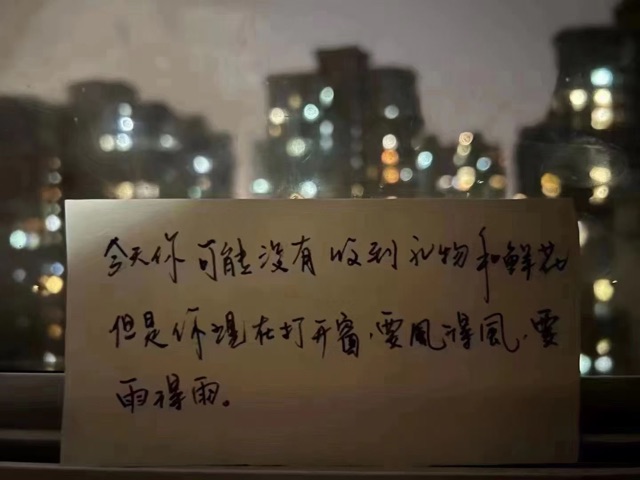 今天你可能没有收到礼物和鲜花
但是你现在打开窗，要風得風，要
雨得雨。